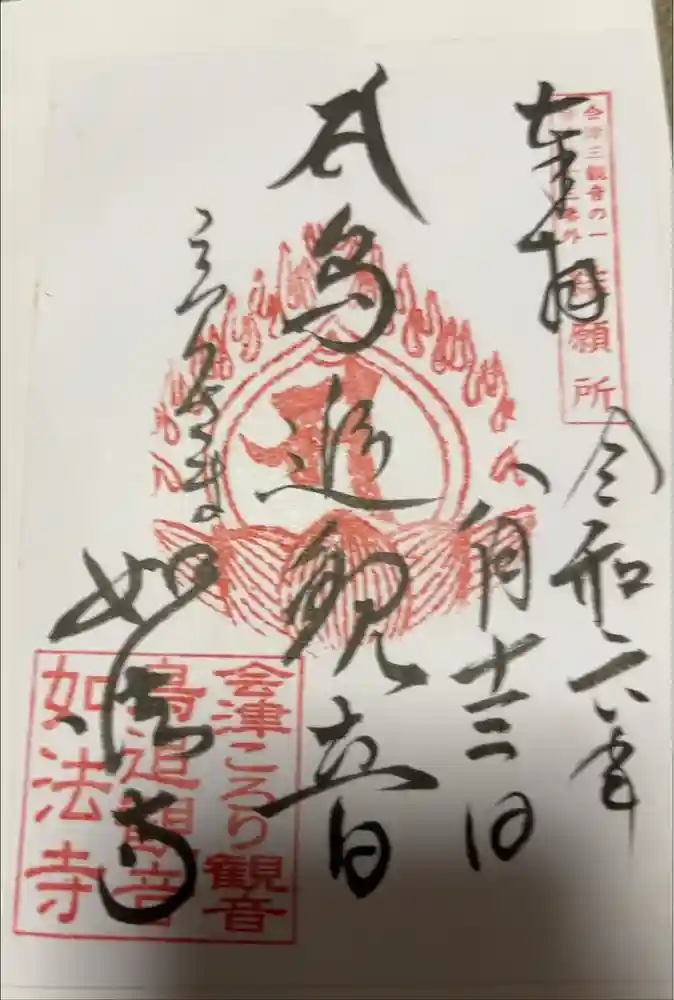 奉拝
会津三観音の一
願所
令和六年
八月十三日
鳥追観音
如法寺
会津ころり観音
鳥追観音
如法寺